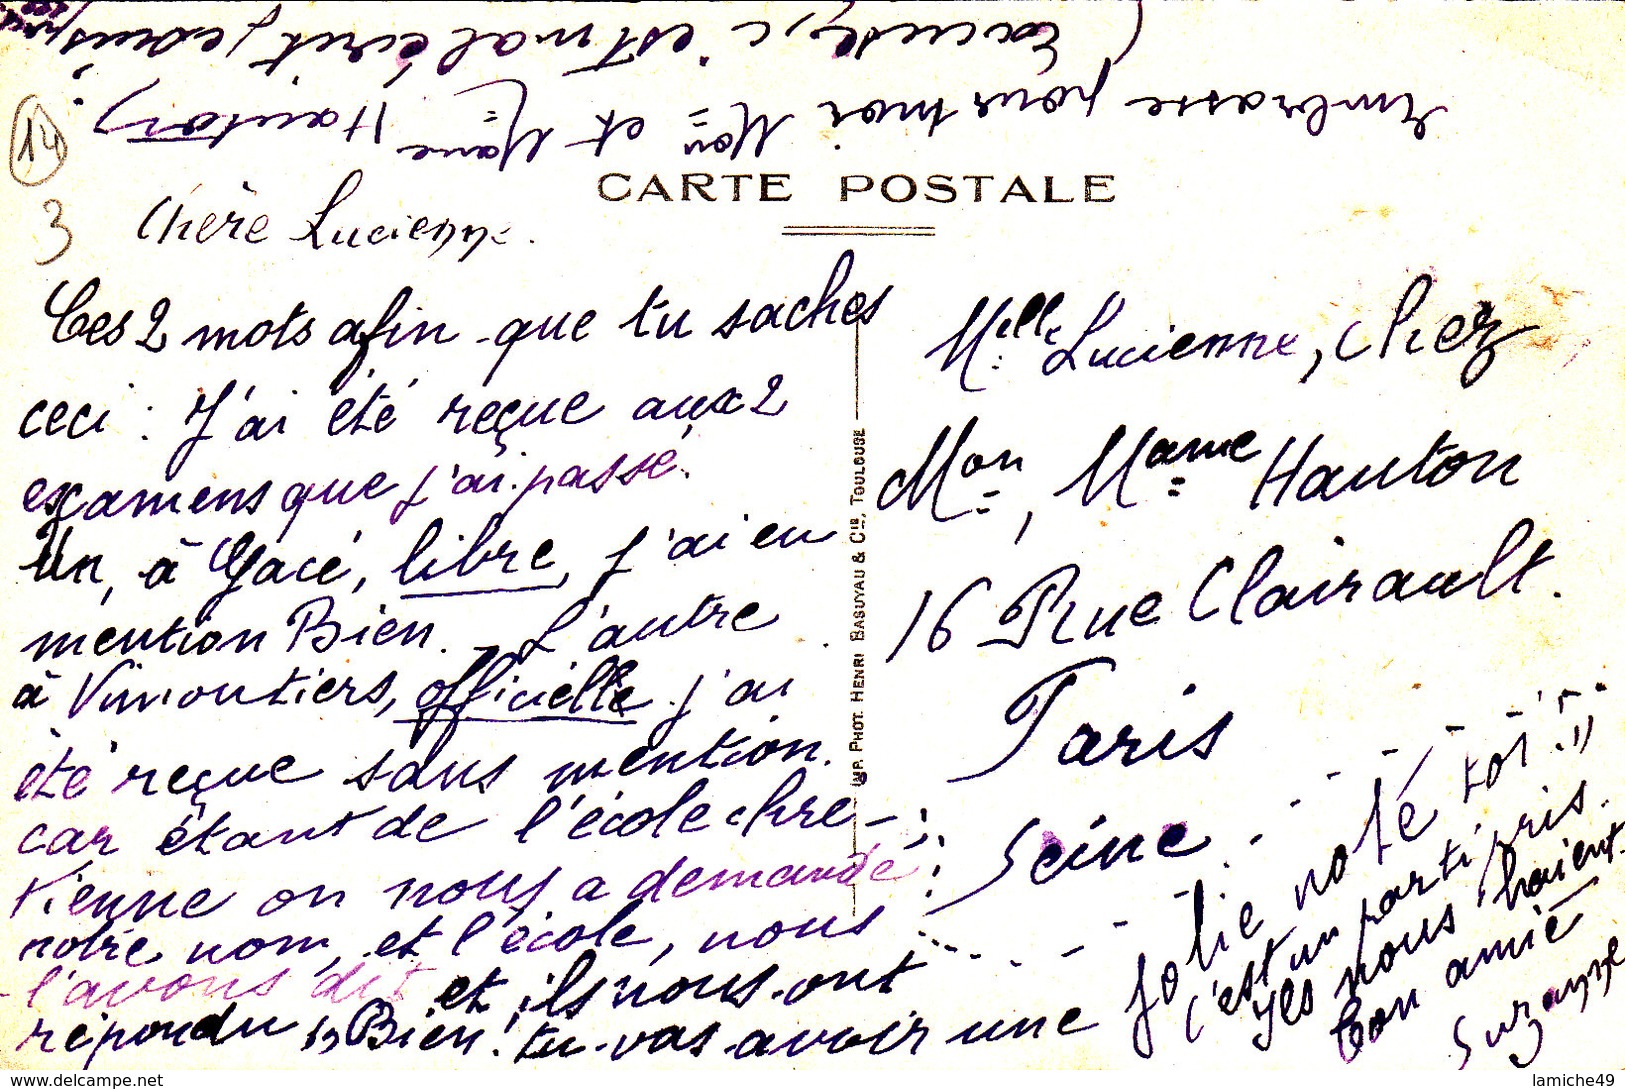 Excuse, c'est mal écrit, je suis
Embrasse pour moi Mon et Mame Hauton
14
3
CARTE POSTALE
Chère Lucienne.
Ces 2 mots afin que tu saches
ceci : J'ai été reçue aux 2
examens que j'ai passé.
Un, à Gacé, libre, j'ai eu
mention Bien. L'autre
à Vimoutiers, officielle j'ai
été reçue sans mention.
car étant de l'école chré-
tienne on nous a demandé
notre nom, et l'école, nous
l'avons dit et ils nous ont
répondu "Bien! tu vas avoir une
jolie note toi!!"
c'est un parti pris.
Ils nous haient.
Bon amie
Suzanne
IMP. PHOT. HENRI BASUYAU & Cie, TOULOUSE
Melle Lucienne, chez
Mon, Mame Hauton
16 Rue Clairault.
Paris
Seine
lamiche49